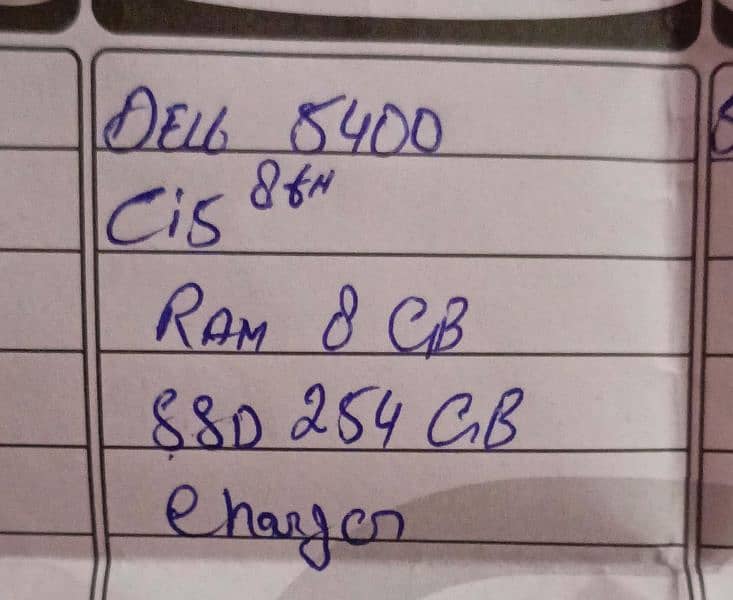 DELL 5400
Ci5 8th
RAM 8 GB
SSD 254 GB
Charger